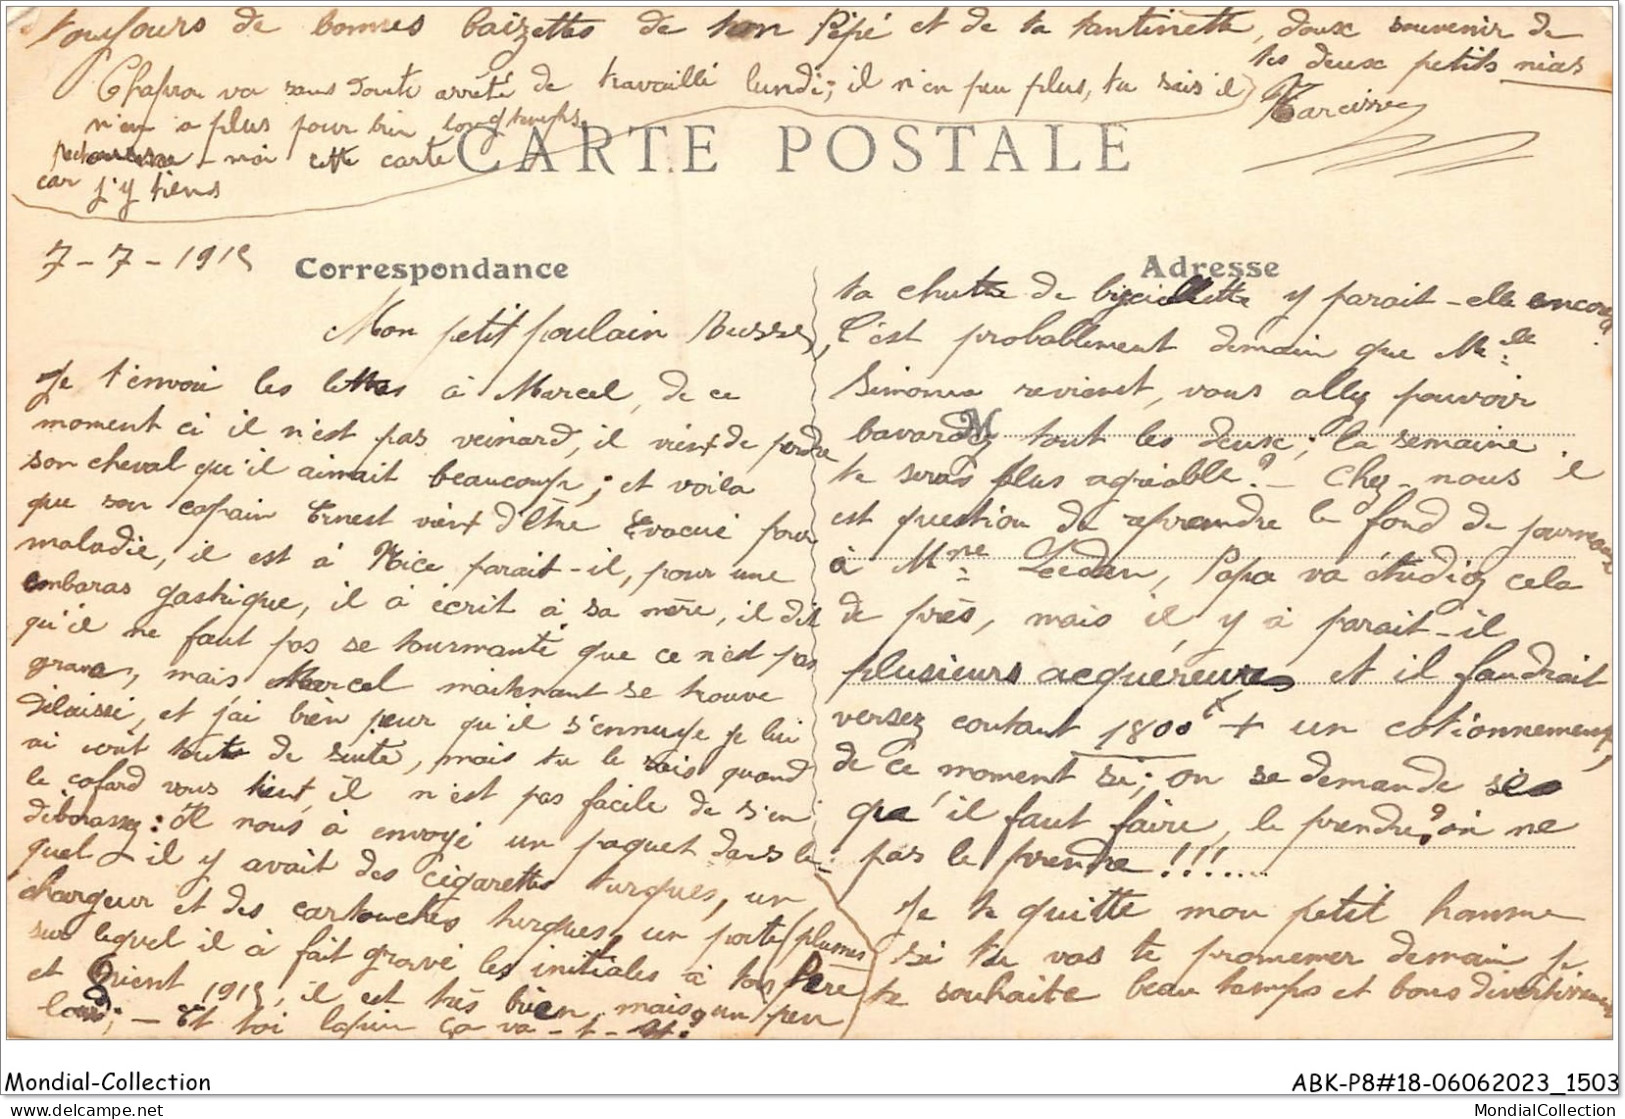 Toujours de bonnes baizettes de ton Pépé et de ta tantinette, doux souvenir de
tes deux petits nias
Chapron va sans doute arrêté de travaillé lundi; il n'en peu plus, tu sais il
Narcisse
n'en a plus pour bien longtemps
-moi cette carte
car j'y tiens
CARTE POSTALE
7-7-1915
Correspondance
Adresse
Mon petit poulain Russe,
Je t'envoi les lettres à Marcel, de ce
moment ci il n'est pas veinard, il vient de perdre
son cheval qu'il aimait beaucoup; et voila
que son copain Ernest vient d'être Evacué pour
maladie, il est à Nice parait-il, pour une
embaras gastrique, il à écrit à sa mère, il dit
qu'il ne faut pas se tourmanté que ce n'est pas
grave, mais Marcel maitenant se trouve
délaissé, et j'ai bien peur qu'il s'ennuye je lui
ai écrit toute de suite, mais tu le sais quand
le cafard vous tient, il n'est pas facile de s'en
débarassez: Il nous à envoyé un paquet dans le-
quel - il y avait des cigarettes turques, un
chargeur et des cartouches turques, un porte plumes
sur lequel il à fait gravé les initiales à ton Père
et Orient 1915, il est très bien, mais un peu
lourd; - Et toi lapin ça va-t-il?
ta chutte de bigciellette y parait-elle encore?
C'est probablement demain que Mlle
Simonne revient, vous allez pouvoir
bavardez tout les deux; la semaine
te seras plus agréable? - Chez-nous il
est question de reprendre le fond de journeaux
à Mme Ledan, Papa va étudiez cela
de près, mais il y à parait-il
plusieurs acquéreures et il faudrait
versez contant 1800 + un cotionnement,
de ce moment si; on se demande si
qu'il faut faire, le prendre? ou ne
pas le prendre !!!....
Je te quitte mon petit homme
si tu vas te promener demain je
te souhaite beau temps et bons divertissements
Mondial-Collection
ABK-P8#18-06062023_1503
www.delcampe.net
MondialCollection